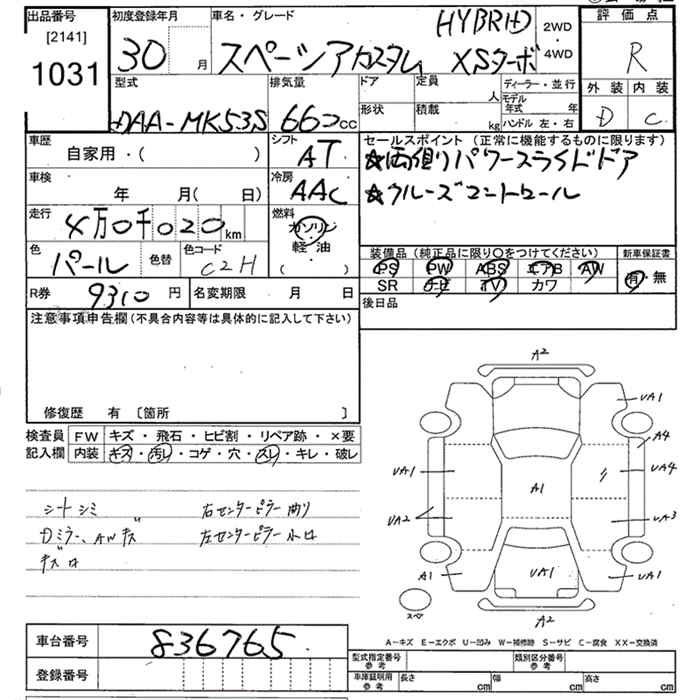 出品番号
[2141]
1031
初度登録年月
30 月
車名・グレード
HYBRID
スペーシアカスタム XSターボ
2WD
・
4WD
評価点
R
外装 内装
D C
型式
DAA-MK53S
排気量
660cc
ドア
形状
定員
人
積載
kg
ディーラー・並行
モデル年式 年
ハンドル 左・右
車歴
自家用・( )
シフト
AT
車検
年 月( 日)
冷房
AAC
走行
4万0千020km
燃料
ガソリン
軽油
( )
色
パール
色替
色コード
C2H
R券 9310円
名変期限 月 日
セールスポイント(正常に機能するものに限ります)
☆両側パワースライドドア
☆クルーズコントロール
装備品(純正品に限り〇をつけてください)
新車保証書
PS PW ABS エアB AW
SR ナビ TV カワ
有・無
後日品
注意事項申告欄(不具合内容等は具体的に記入して下さい)
修復歴 有 〔箇所 〕
検査員記入欄
FW キズ・飛石・ヒビ割・リペア跡・×要
内装 キズ・汚レ・コゲ・穴・スレ・キレ・破レ
シートシミ
Dミラー、AWキズ
キズロ
右センターピラー曲り
左センターピラー小口
A2
UA1
A4
UA1
A1
UA4
UA2
UA3
A1
UA1
UA1
スペ
A2
A-キズ E-エクボ U-凹み W-補修跡 S-サビ C-腐食 XX-交換済
車台番号 836765
登録番号
型式指定番号
参考
類別区分番号
参考
車庫証明用
参考
長さ cm 幅 cm 高さ cm